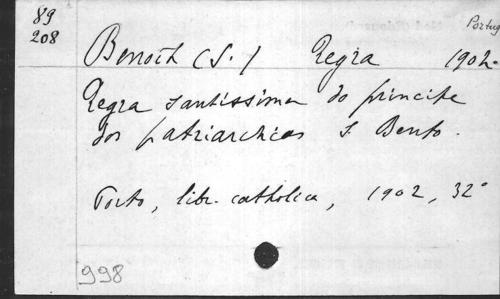 89
208
Portug
Benoit (S.) Regra 1902.
Regra santissima do principe
dos patriarchas S Bento.
Porto, libr. catholica, 1902, 32°
998